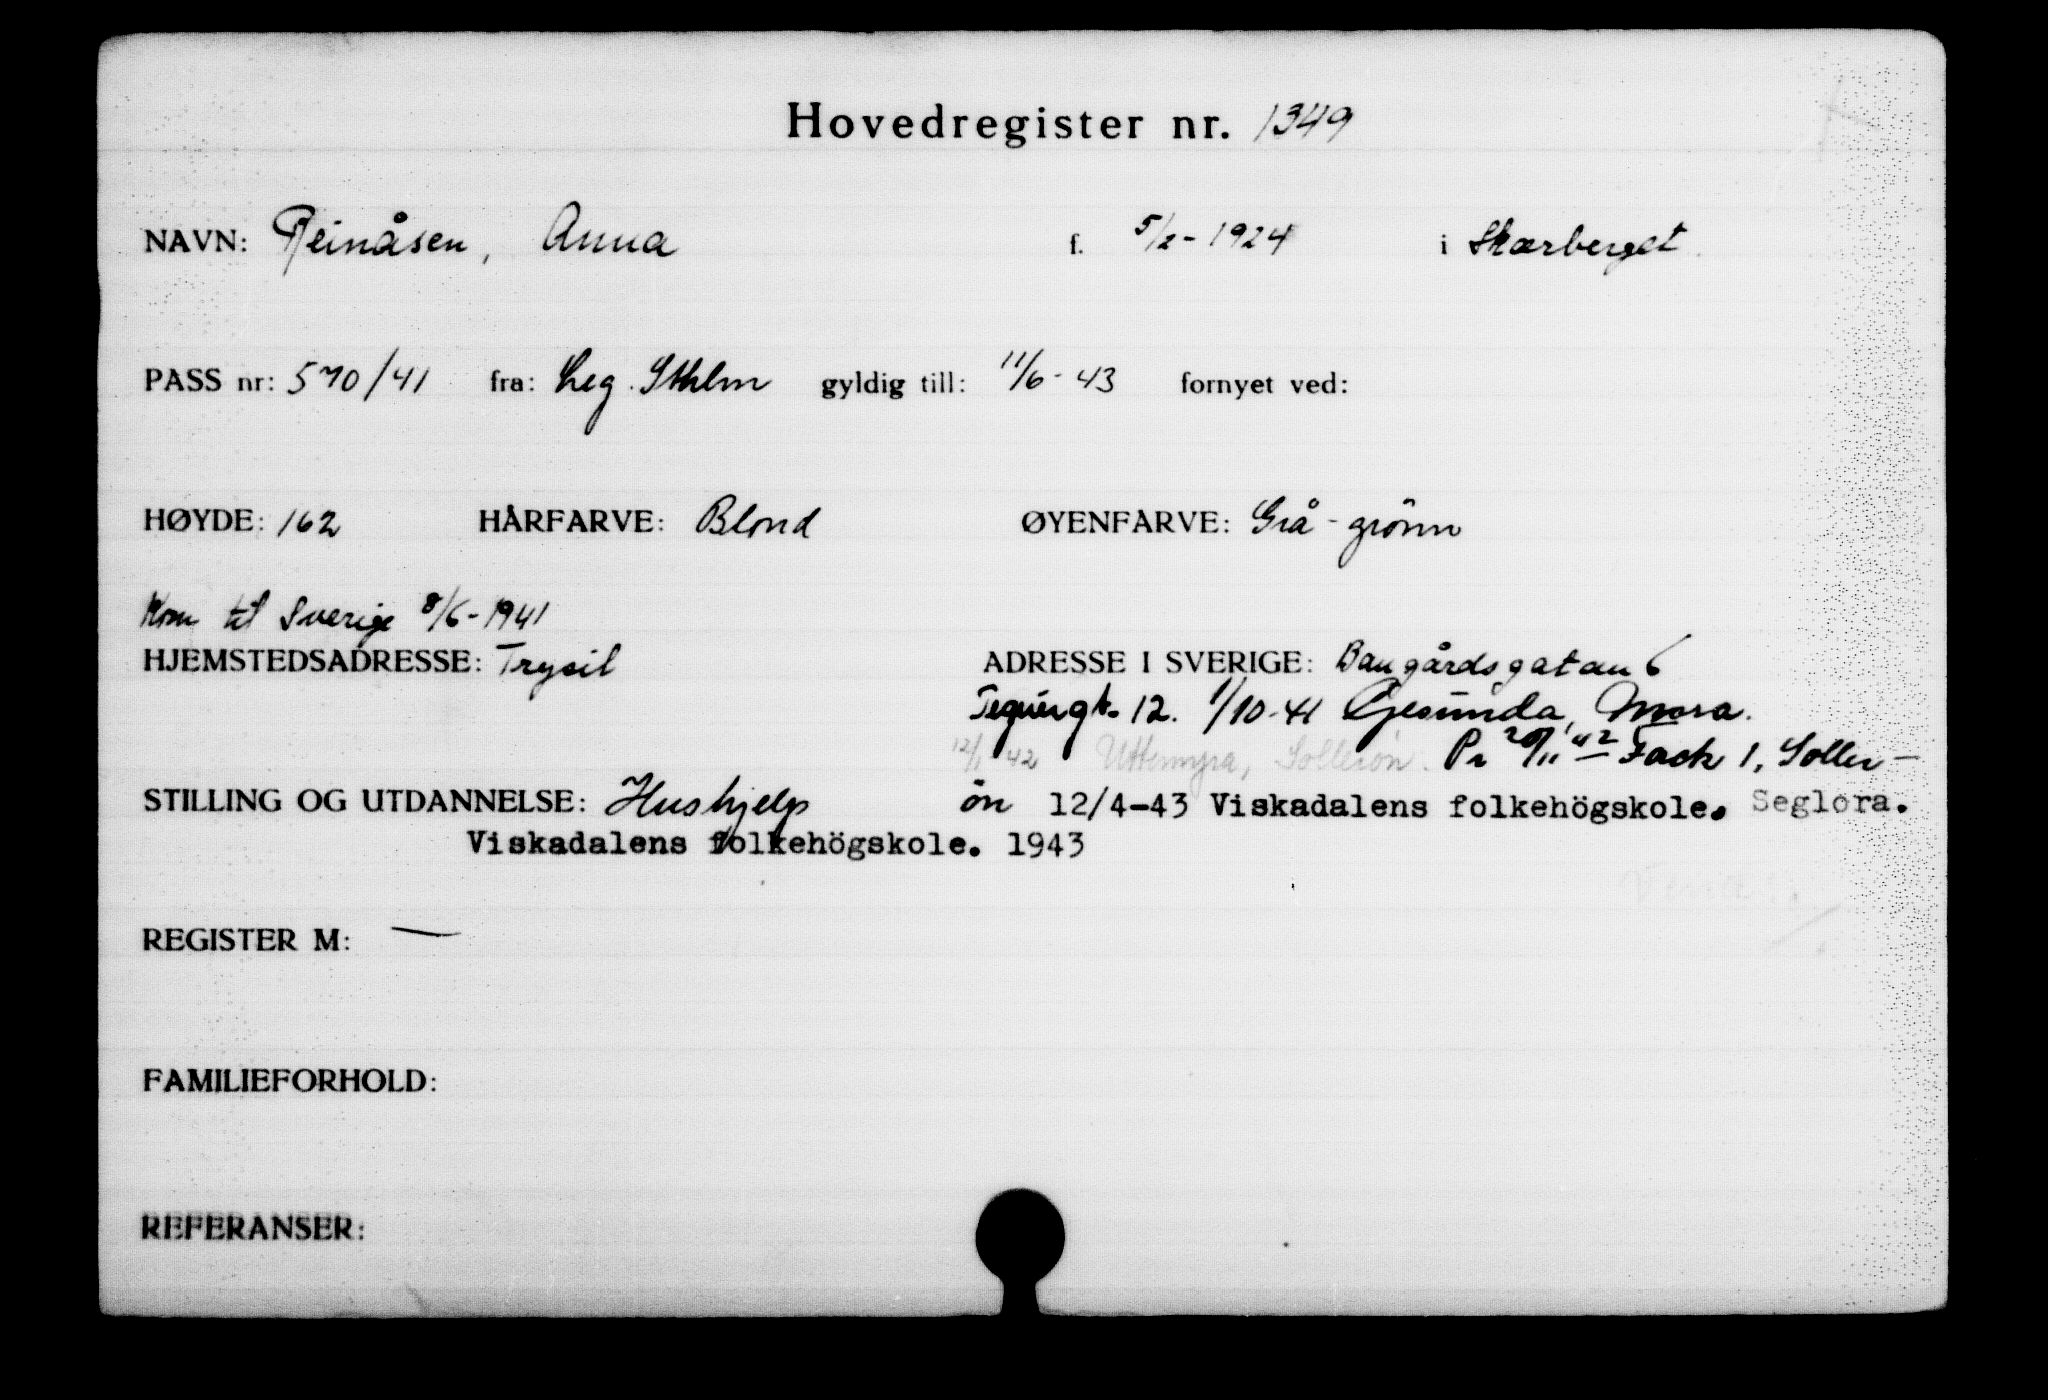 Hovedregister nr. 1349
NAVN: Reinåsen, Anna f. 5/2-1924 i Skærberget.
PASS nr: 570/41 fra: Leg. Sthlm gyldig till: 11/6-43 fornyet ved:
HØYDE: 162 HÅRFARVE: Blond ØYENFARVE: Grå-grönn
Kom til Sverige 8/6-1941
HJEMSTEDSADRESSE: Trysil ADRESSE I SVERIGE: Bangårdsgatan 6
Tegnérgt. 12. 1/10-41 Gesunda, Mora.
12/1 42 Uttermyra, Sollerön. Pr 20/11 42 Fack 1, Soller-
STILLING OG UTDANNELSE: Hushjelp ön 12/4-43 Viskadalens folkehögskole. Seglora.
Viskadalens folkehögskole. 1943
REGISTER M: —
FAMILIEFORHOLD:
REFERANSER: